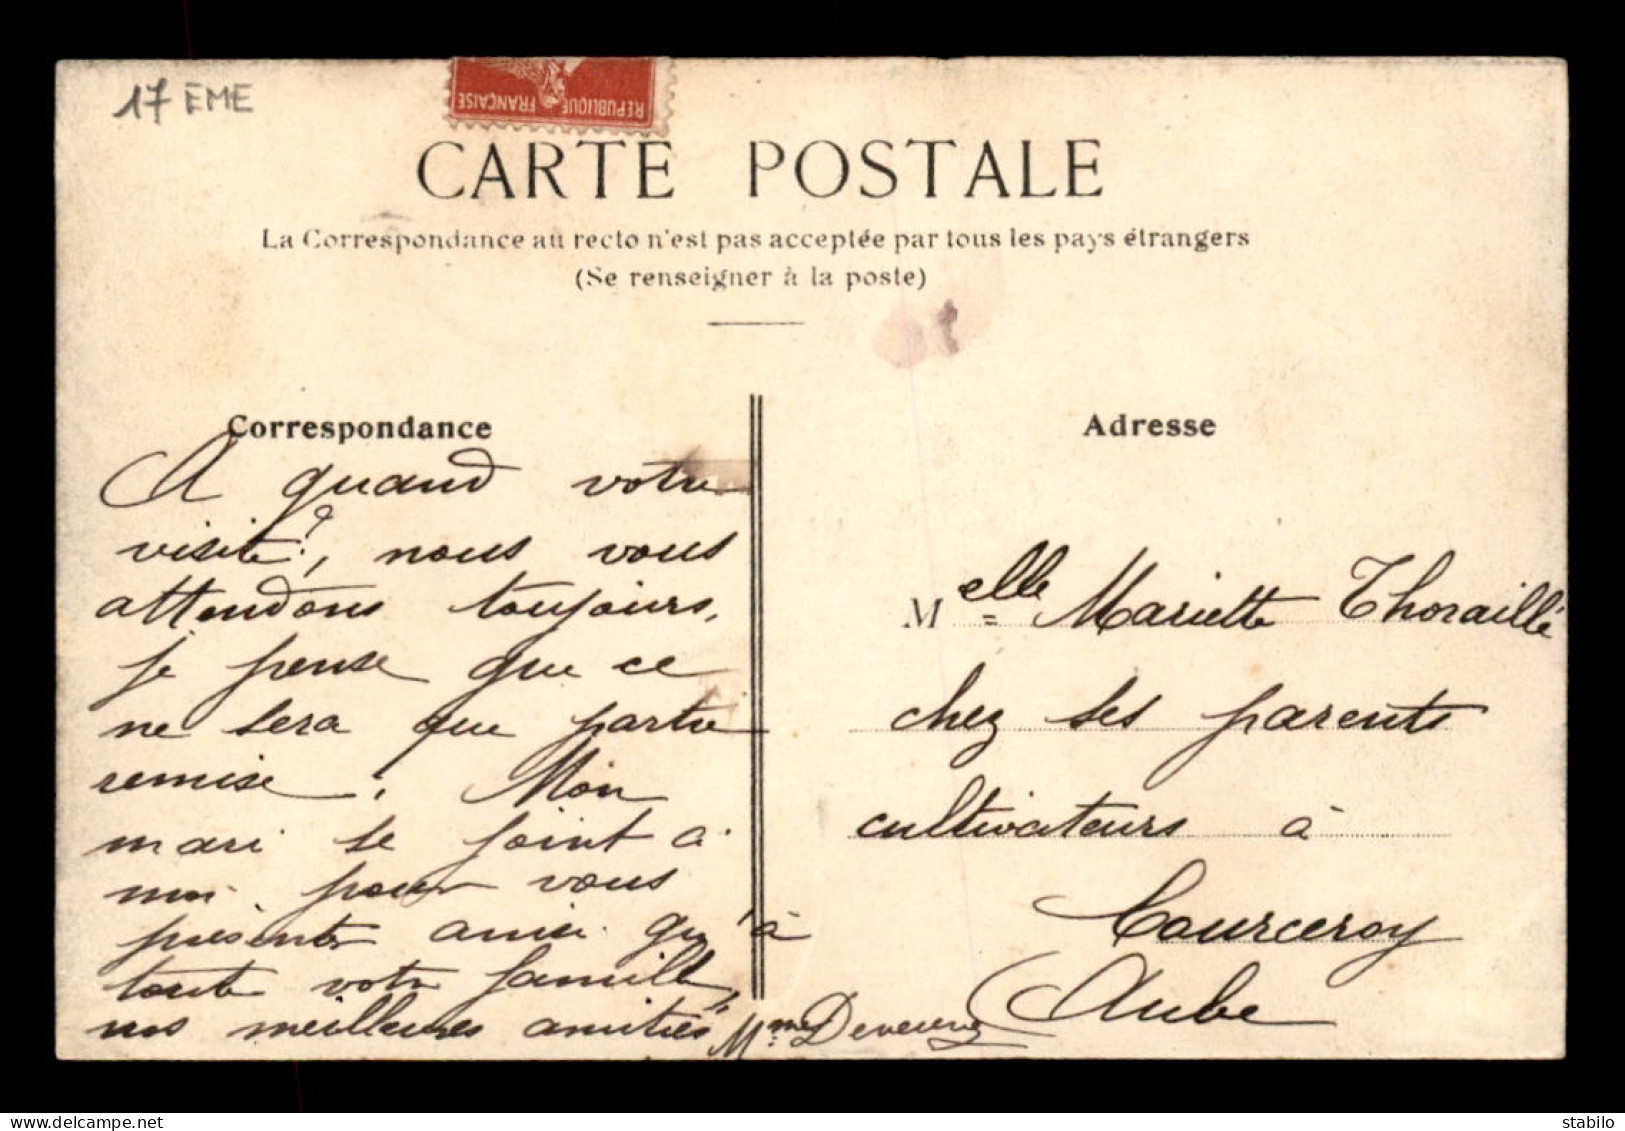 17 EME
REPUBLIQUE FRANÇAISE
CARTE POSTALE
La Correspondance au recto n'est pas acceptée par tous les pays étrangers
(Se renseigner à la poste)
Correspondance
A quand votre
visite?, nous vous
attendons toujours,
je pense que ce
ne sera que partie
remise. Mon
mari se joint à
moi pour vous
présenter ainsi qu'à
toute votre famille,
nos meilleures amitiés
Mme
Adresse
Melle Mariette Thoraillé
chez ses parents
cultivateurs à
Courceroy
Aube
stabilo